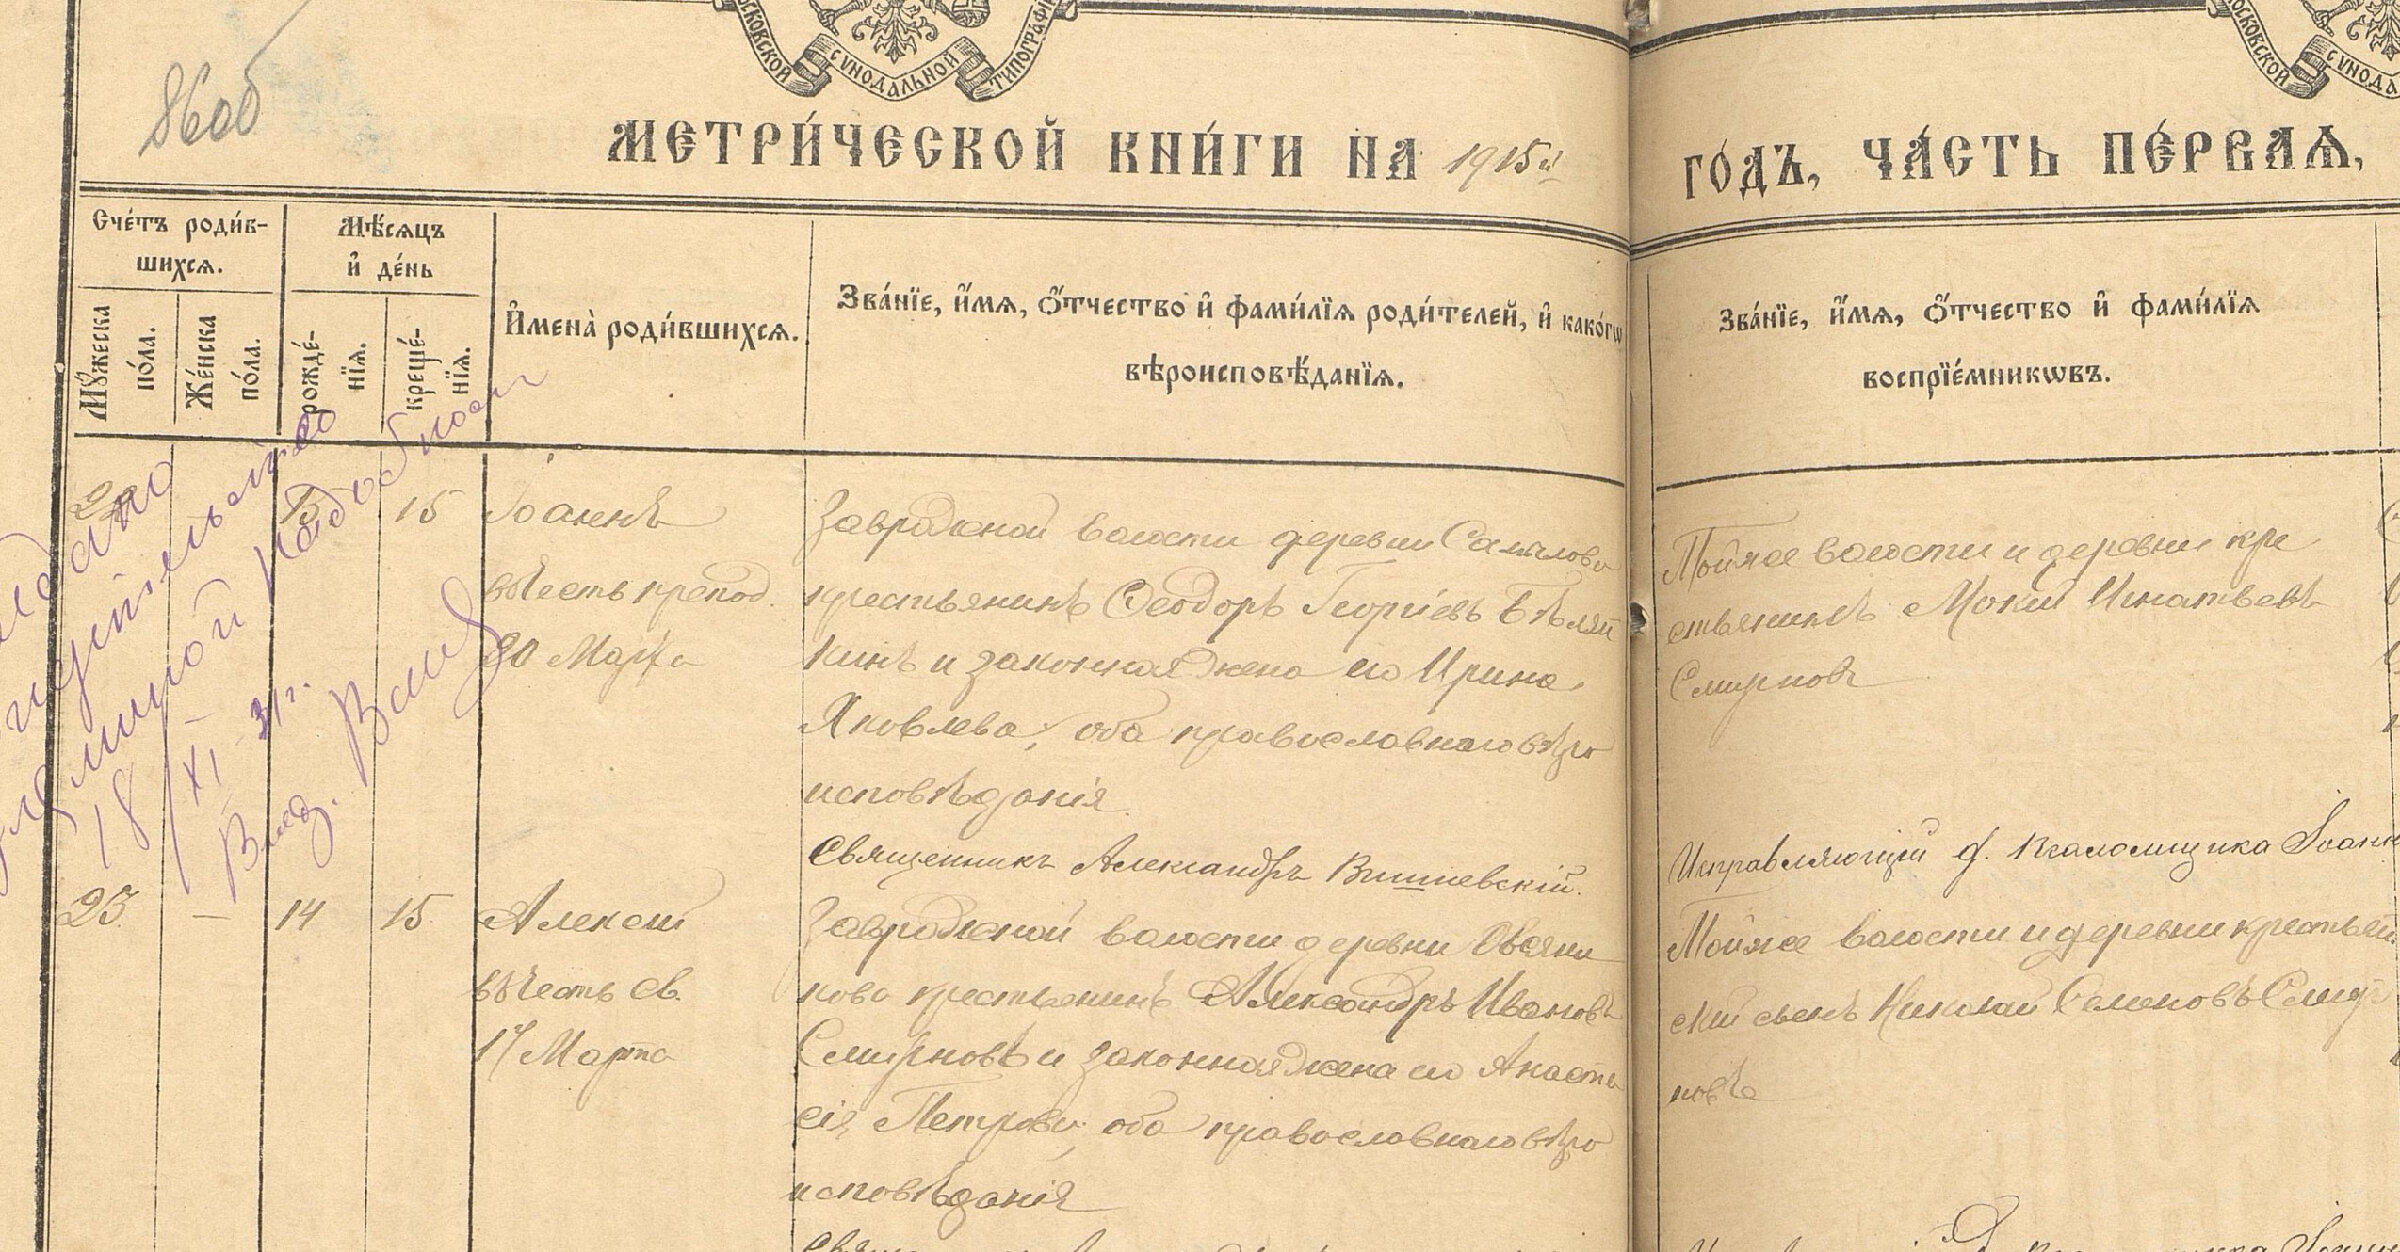 86об
МОСКОВСКОЙ СѴНОДАЛЬНОЙ ТИПОГРАФІ
МОСКОВСКОЙ СѴНОДА
МЕТРИ́ЧЕСКОЙ КНИ́ГИ НА 1915й
ГО́ДЪ, ЧА́СТЬ ПЕ́РВАѦ,
Сче́тъ роди́в-
шихсѧ.
Мꙋ́жеска
по́ла.
Же́нска
по́ла.
Мѣ́сѧцъ
и҆ де́нь
рожде́-
нїѧ.
креще́-
нїѧ.
И҆мена̀ роди́вшихсѧ.
Зва́нїе, и҆́мѧ, ѻ҆́тчество и҆ фами́лїѧ роди́телей, и҆ како́гѡ
вѣроисповѣ́данїѧ.
Зва́нїе, и҆́мѧ, ѻ҆́тчество и҆ фами́лїѧ
воспрїе́мникѡвъ.
22
13
15
Іоаннъ
въ честь препод.
30 Марта
Завражной волости деревни
крестьянинъ Ѳеодоръ Георгіевъ Бѣляй
кинъ и законная жена его Ирина
Яковлева, оба православнаго вѣро
исповѣданія.
Священникъ Александръ Вишневскій.
Той же волости и деревни кре
стьянинъ Мокій Игнатьевъ
Смирновъ
Исправляющій д. псаломщика Іоанн
выдано
18/XI 31г.
23.
—
14
15
Алексій
въ честь св.
17 Марта
Завражной волости деревни Овсяни
ково крестьянинъ Александръ Ивановъ
Смирновъ и законная жена его Анаста
сія Петрова, оба православнаго вѣро
исповѣданія
Той же волости и деревни крестьян
скій сынъ Николай Семеновъ Смир
новъ